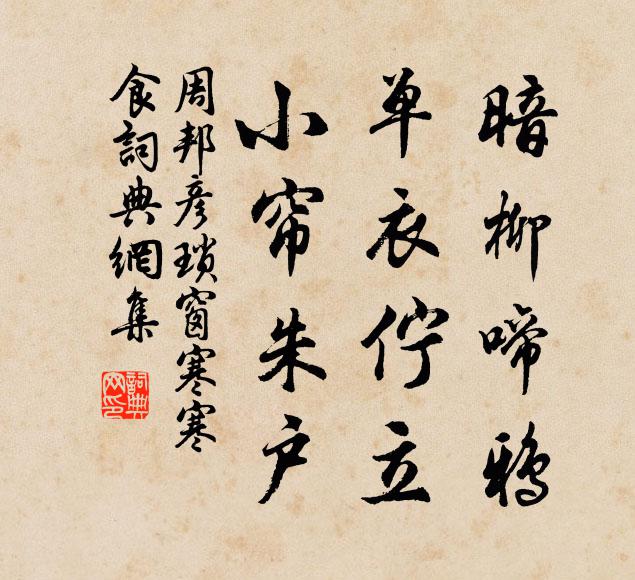 暗柳啼鴉
单衣佇立
小帘朱户
周邦彥瑣窗寒寒
食詞典網集
詞典
网印